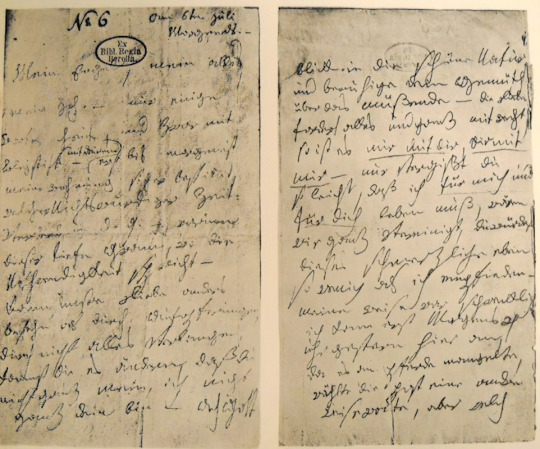 No 6 Am 6ten Juli
Morgends. –
Ex
Bibl. Regia
Berolin.
Mein Engel, mein alles
mein Ich. – nur einige
Worte heute, und zwar mit
Bleystift – (mit deinem) – bis morgen ist
meine Wohnung sicher bestimmt,
welcher Nichtswürdige Zeit-
in d. g. – warum
dieser tiefe Gram, wo die
Nothwendigkeit spricht –
Kann unsre Liebe anders
bestehn als durch Aufopferungen,
durch nicht alles verlangen,
kannst du es ändern, daß du
nicht ganz mein, ich nicht
ganz dein bin – Ach Gott
blick in die schöne Natur
und beruhige dein Gemüth
über das müßende – die Liebe
fordert alles und ganz mit recht,
so ist es mir mit dir, dir mit
mir – nur vergißt du
so leicht, daß ich für mich und
für dich leben muß, wären
wir ganz vereinigt, du würdest
dieses schmerzliche eben
so wenig als ich empfinden –
meine Reise war schrecklich
ich kam erst Morgens 4
uhr gestern hier an,
da es an Pferde mangelte,
wählte die Post eine andre
Reiseroute, aber welch